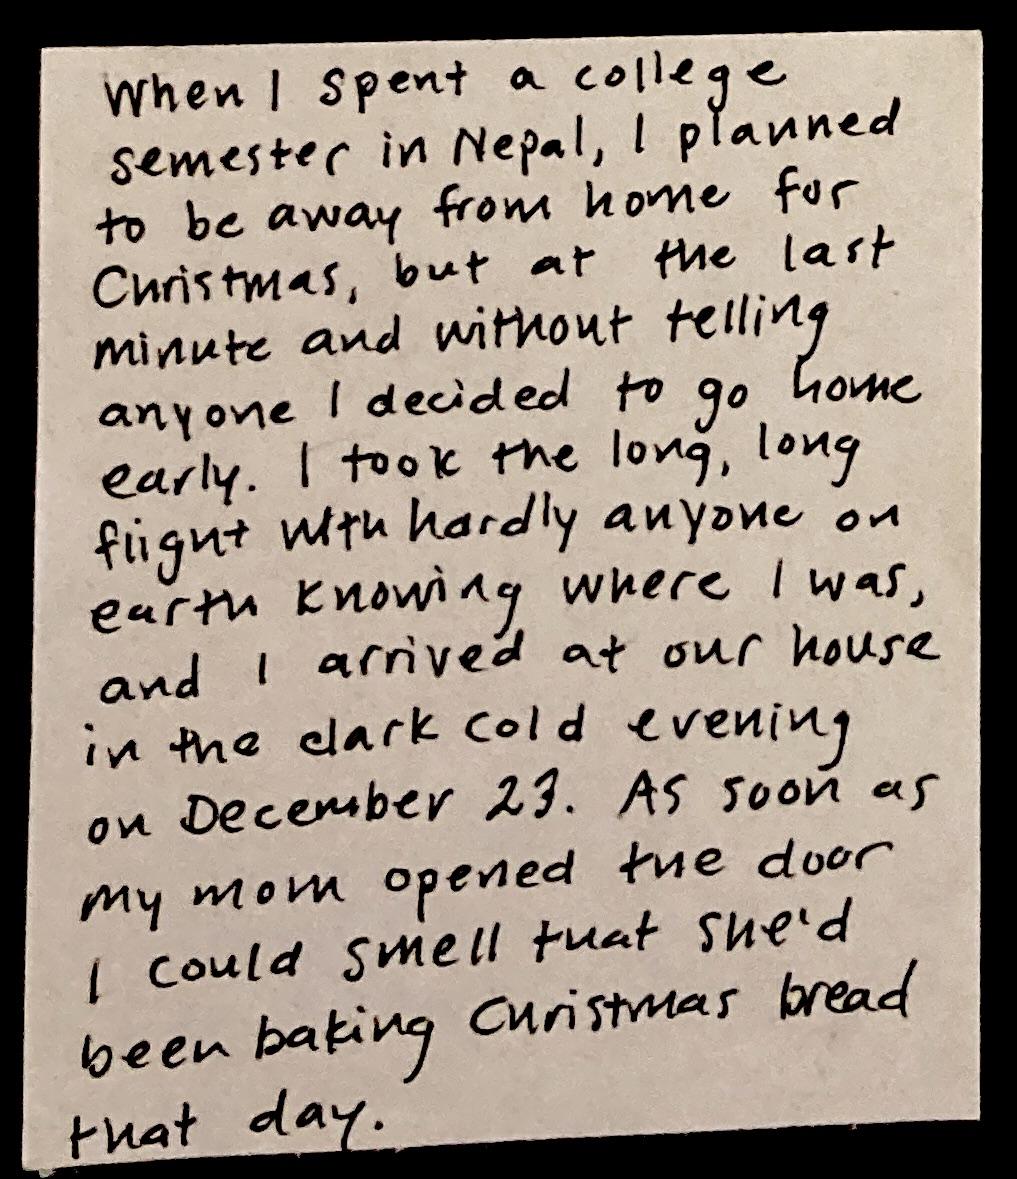 When I spent a college
semester in Nepal, I planned
to be away from home for
Christmas, but at the last
minute and without telling
anyone I decided to go home
early. I took the long, long
flight with hardly anyone on
earth knowing where I was,
and I arrived at our house
in the dark cold evening
on December 23. As soon as
my mom opened the door
I could smell that she'd
been baking Christmas bread
that day.